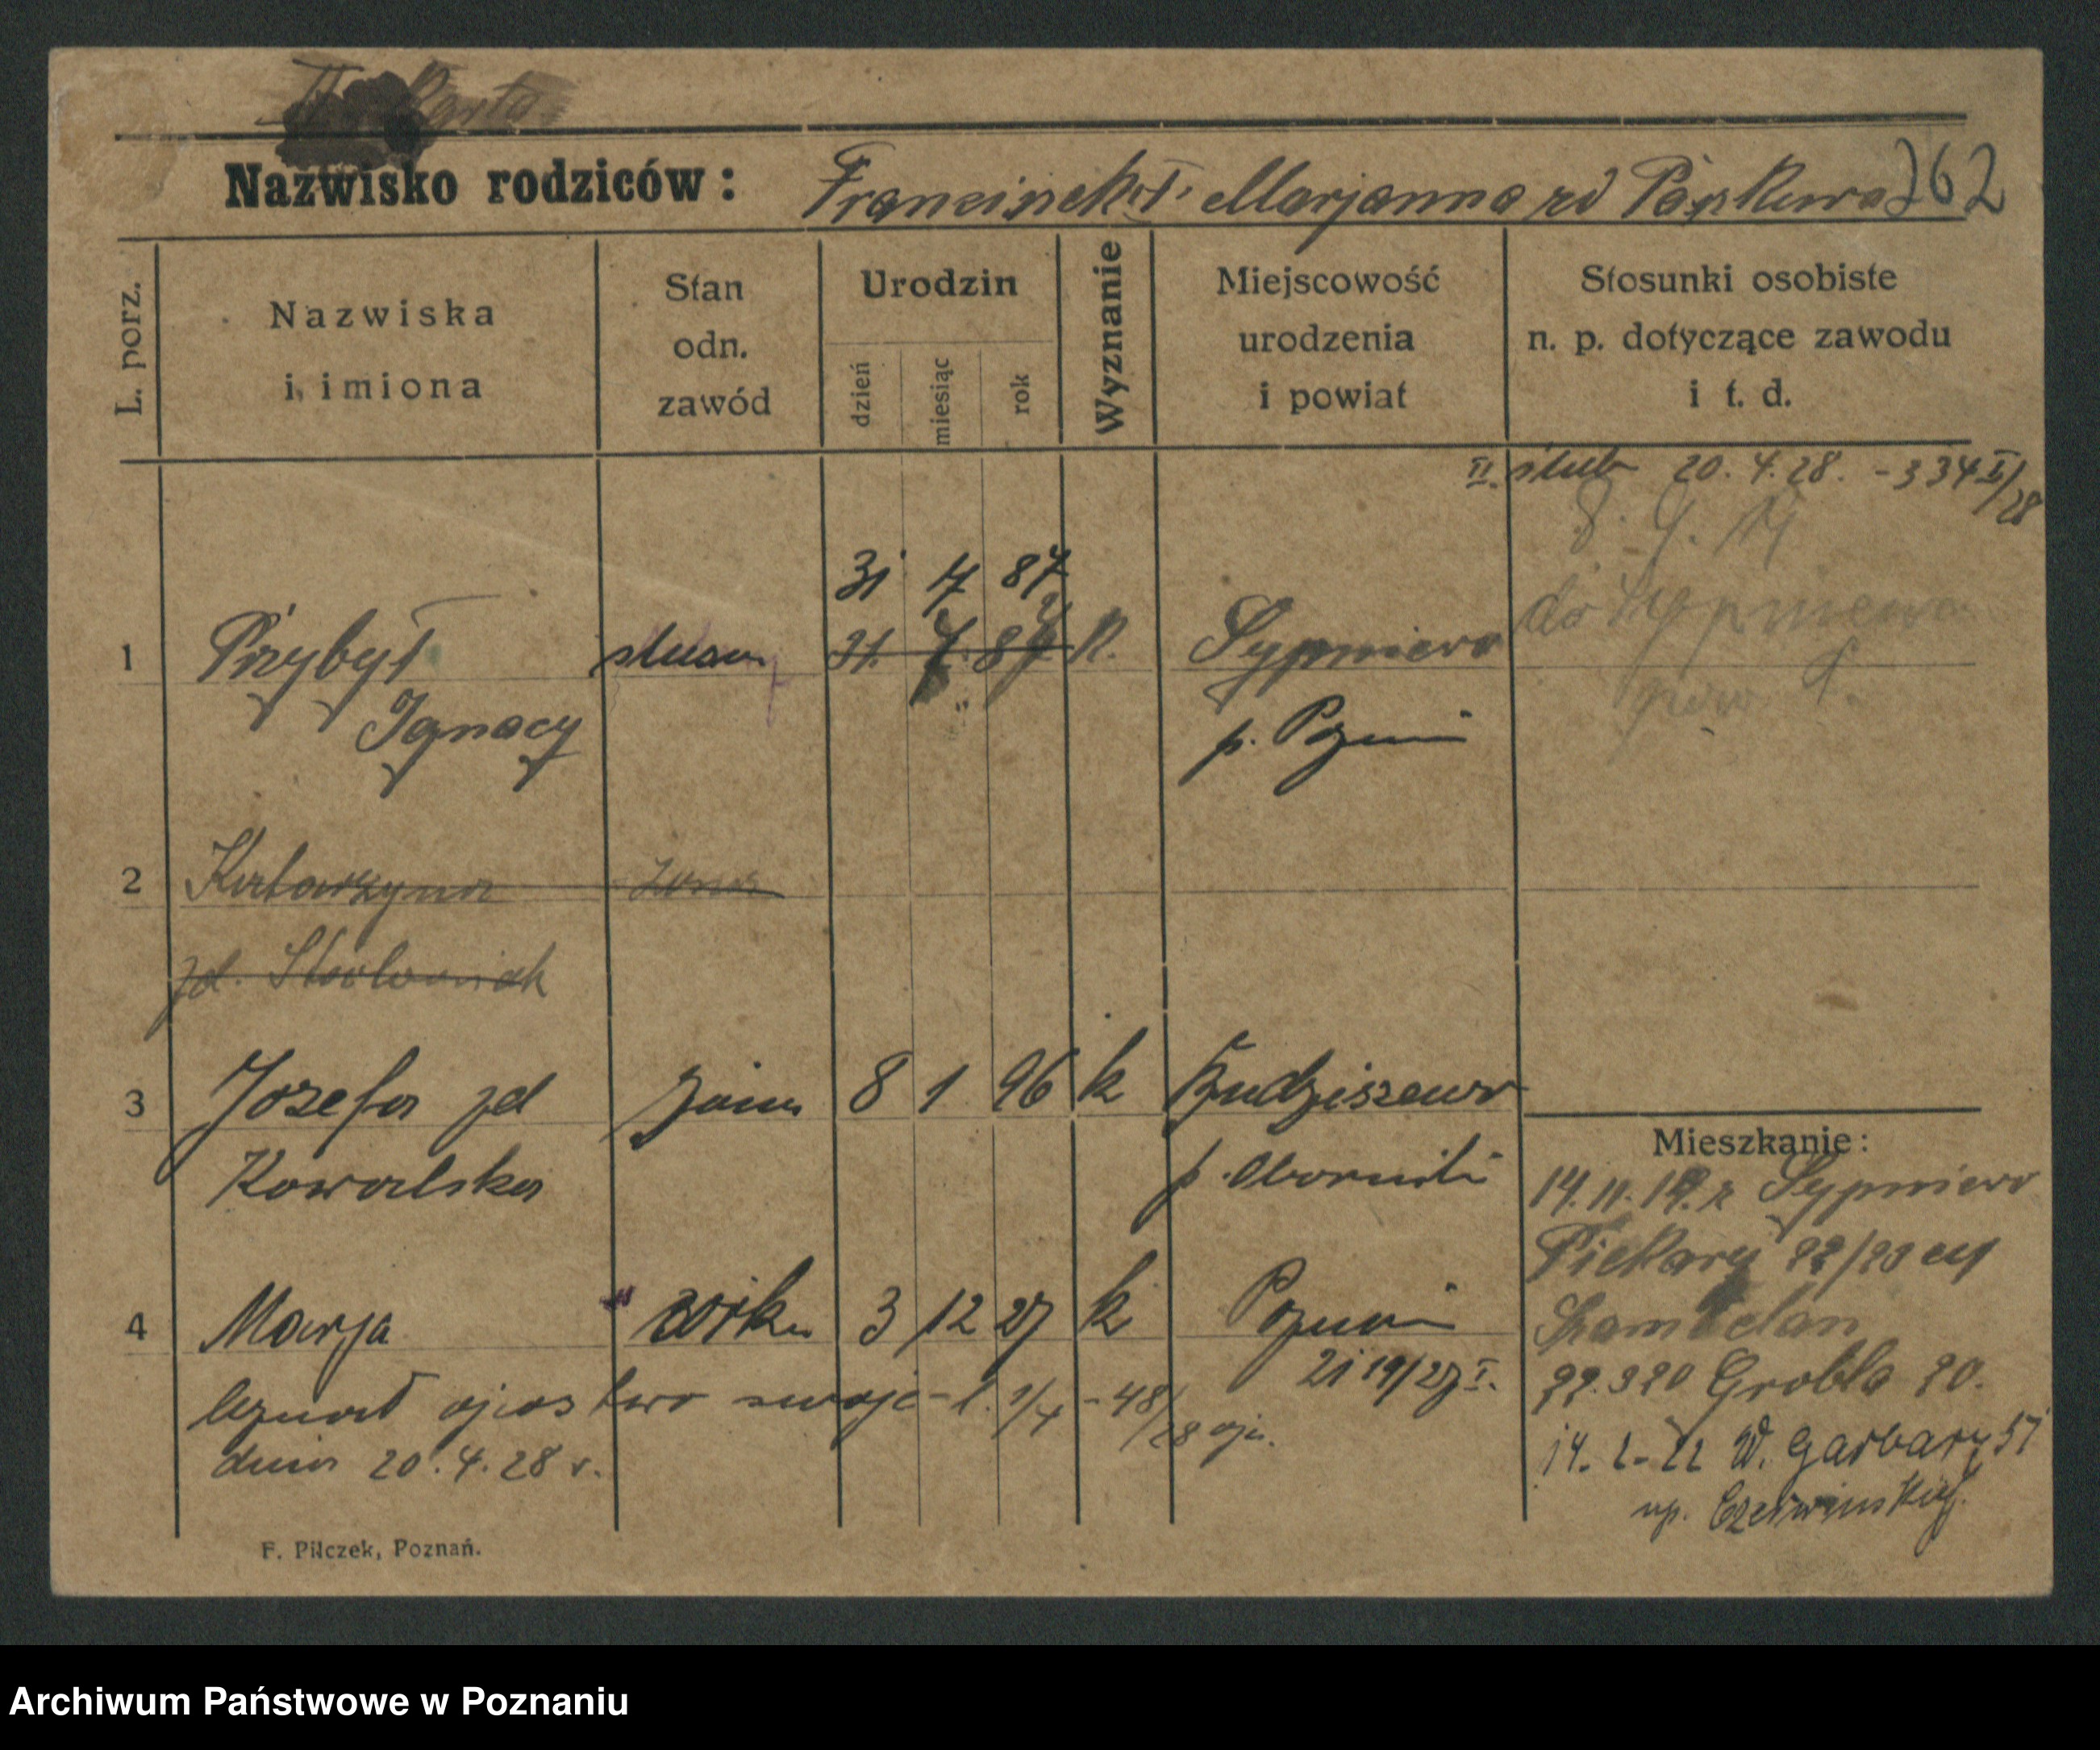 II Karta
Nazwisko rodziców: Franciszek i Marjanna zd
762
L. porz.
Nazwiska
i imiona
Stan
odn.
zawód
Urodzin
dzień
miesiąc
rok
Wyznanie
Miejscowość
urodzenia
i powiat
Stosunki osobiste
n. p. dotyczące zawodu
i t. d.
II ślub 20.4.28. - 334 I/28
31 7 87
do Sypniewa
pow P.
1 Przybył 31. 7. 87 K. Sypniewo
Ignacy p. Poznań
2 Katarzyna żona
zd.
3 Józefa zd żona 8 1 96 k
Kowalska p. Oborniki
Mieszkanie:
14.11.19. z Sypniewo
Piekary 22/23
4 Marja córka 3 12 27 k Poznań
21 19/27 I.
uznał ojcostwo swoje - l. 1/4 - 48/28 ojc.
dnia 20.4.28 r.
Grobla 20.
14. 2. 22 W. Garbary 51
up. Czerwińskiej
F. Pilczek, Poznań.
Archiwum Państwowe w Poznaniu